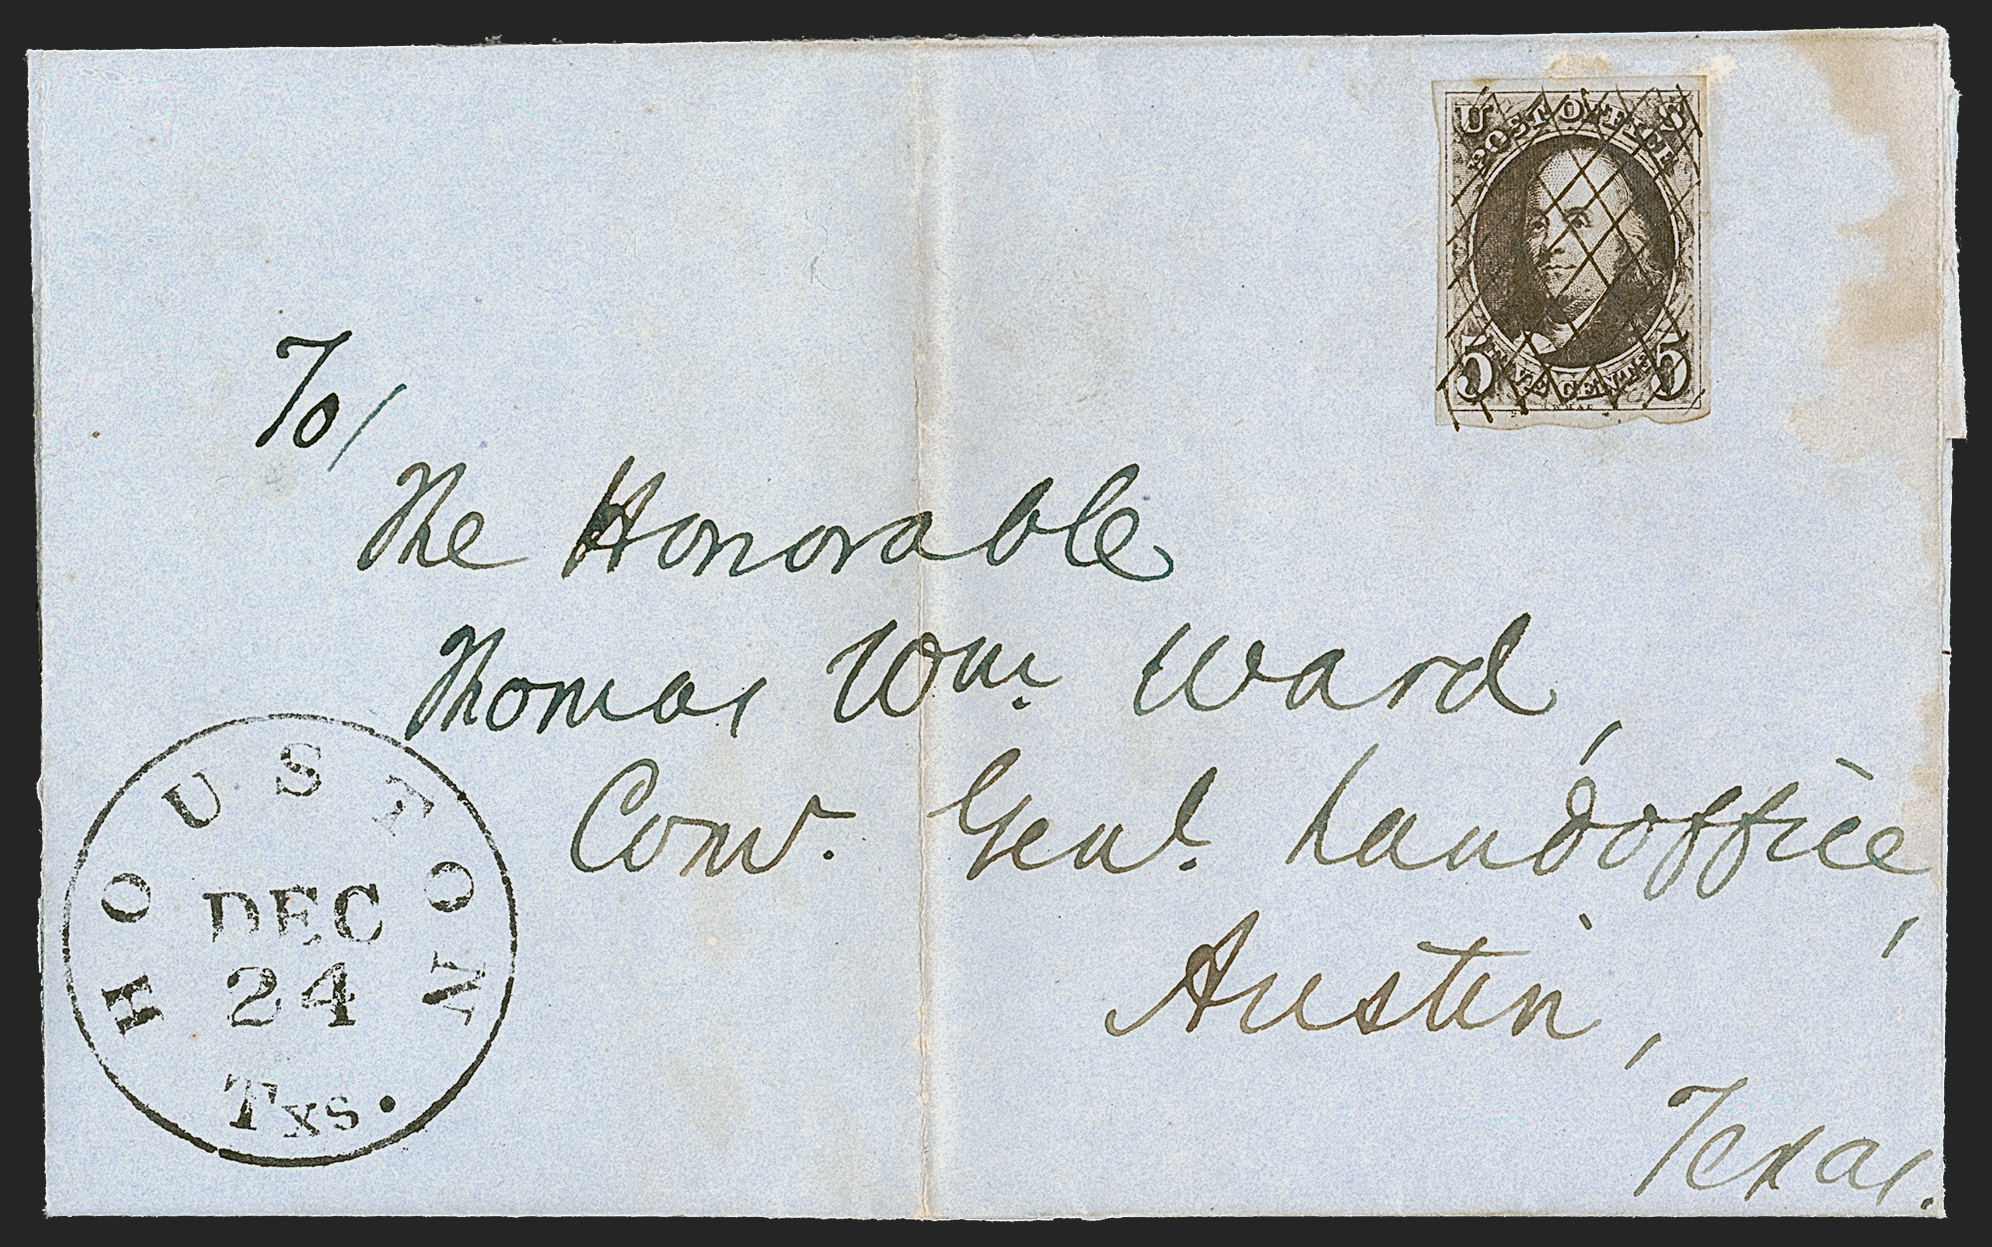 U S
POST OFFICE
5 FIVE CENTS 5
To/
The Honorable
Thomas Wm. Ward,
Com. Genl. Landoffice,
Austin,
Texas.
HOUSTON
DEC
24
Txs.